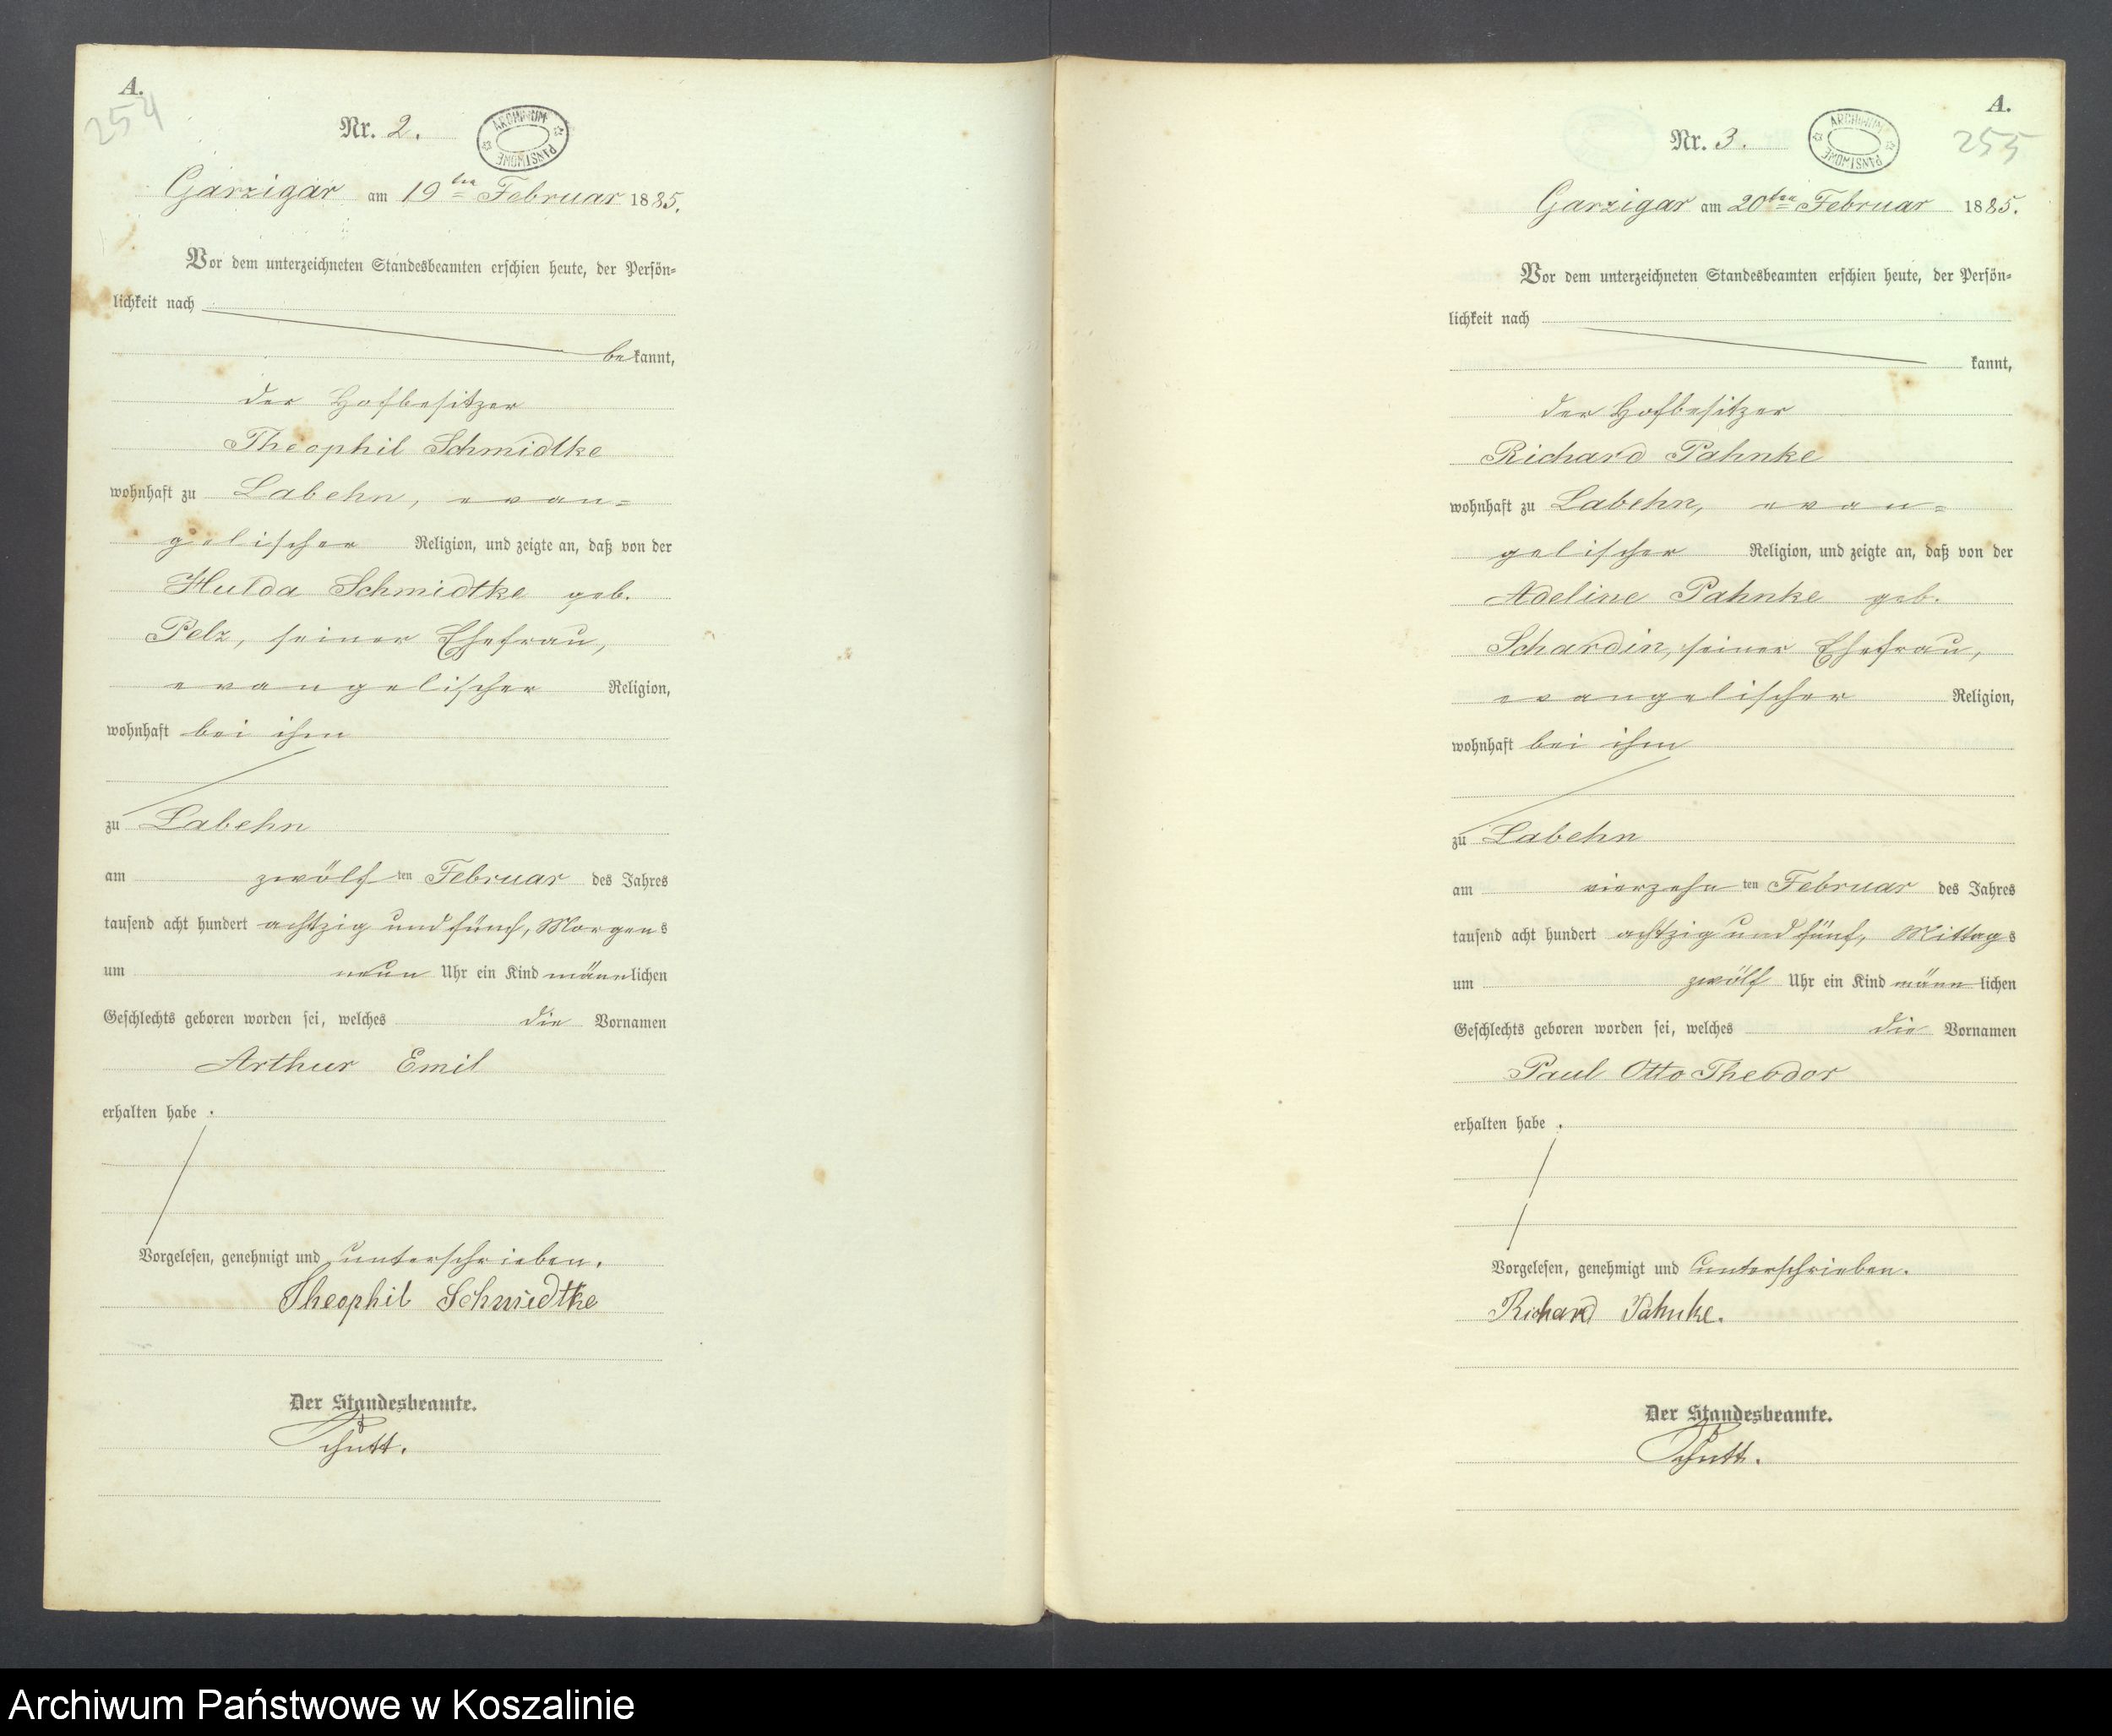 A.
254
Nr. 2.
ARCHIWUM PAŃSTWOWE
Garzigar am 19ten Februar 1885.
Vor dem unterzeichneten Standesbeamten erschien heute, der Persön=
lichkeit nach
bekannt,
der Hofbesitzer
Theophil Schmidtke
wohnhaft zu Labehn, evan=
gelischer Religion, und zeigte an, daß von der
Hulda Schmidtke geb.
Pelz, seiner Ehefrau,
evangelischer Religion,
wohnhaft bei ihm
zu Labehn
am zwölf ten Februar des Jahres
tausend acht hundert achtzig und fünf, Morgens
um neun Uhr ein Kind männlichen
Geschlechts geboren worden sei, welches die Vornamen
Arthur Emil
erhalten habe .
Vorgelesen, genehmigt und unterschrieben.
Theophil Schmidtke
Der Standesbeamte.
Schutt.
A.
255
Nr. 3.
ARCHIWUM PAŃSTWOWE
Garzigar am 20ten Februar 1885.
Vor dem unterzeichneten Standesbeamten erschien heute, der Persön=
lichkeit nach
kannt,
der Hofbesitzer
Richard Pahnke
wohnhaft zu Labehn, evan=
gelischer Religion, und zeigte an, daß von der
Adeline Pahnke geb.
Schardin, seiner Ehefrau,
evangelischer Religion,
wohnhaft bei ihm
zu Labehn
am vierzehn ten Februar des Jahres
tausend acht hundert achtzig und fünf, Mittags
um zwölf Uhr ein Kind männlichen
Geschlechts geboren worden sei, welches die Vornamen
Paul Otto Theodor
erhalten habe .
Vorgelesen, genehmigt und unterschrieben.
Richard Pahnke.
Der Standesbeamte.
Schutt.
Archiwum Państwowe w Koszalinie